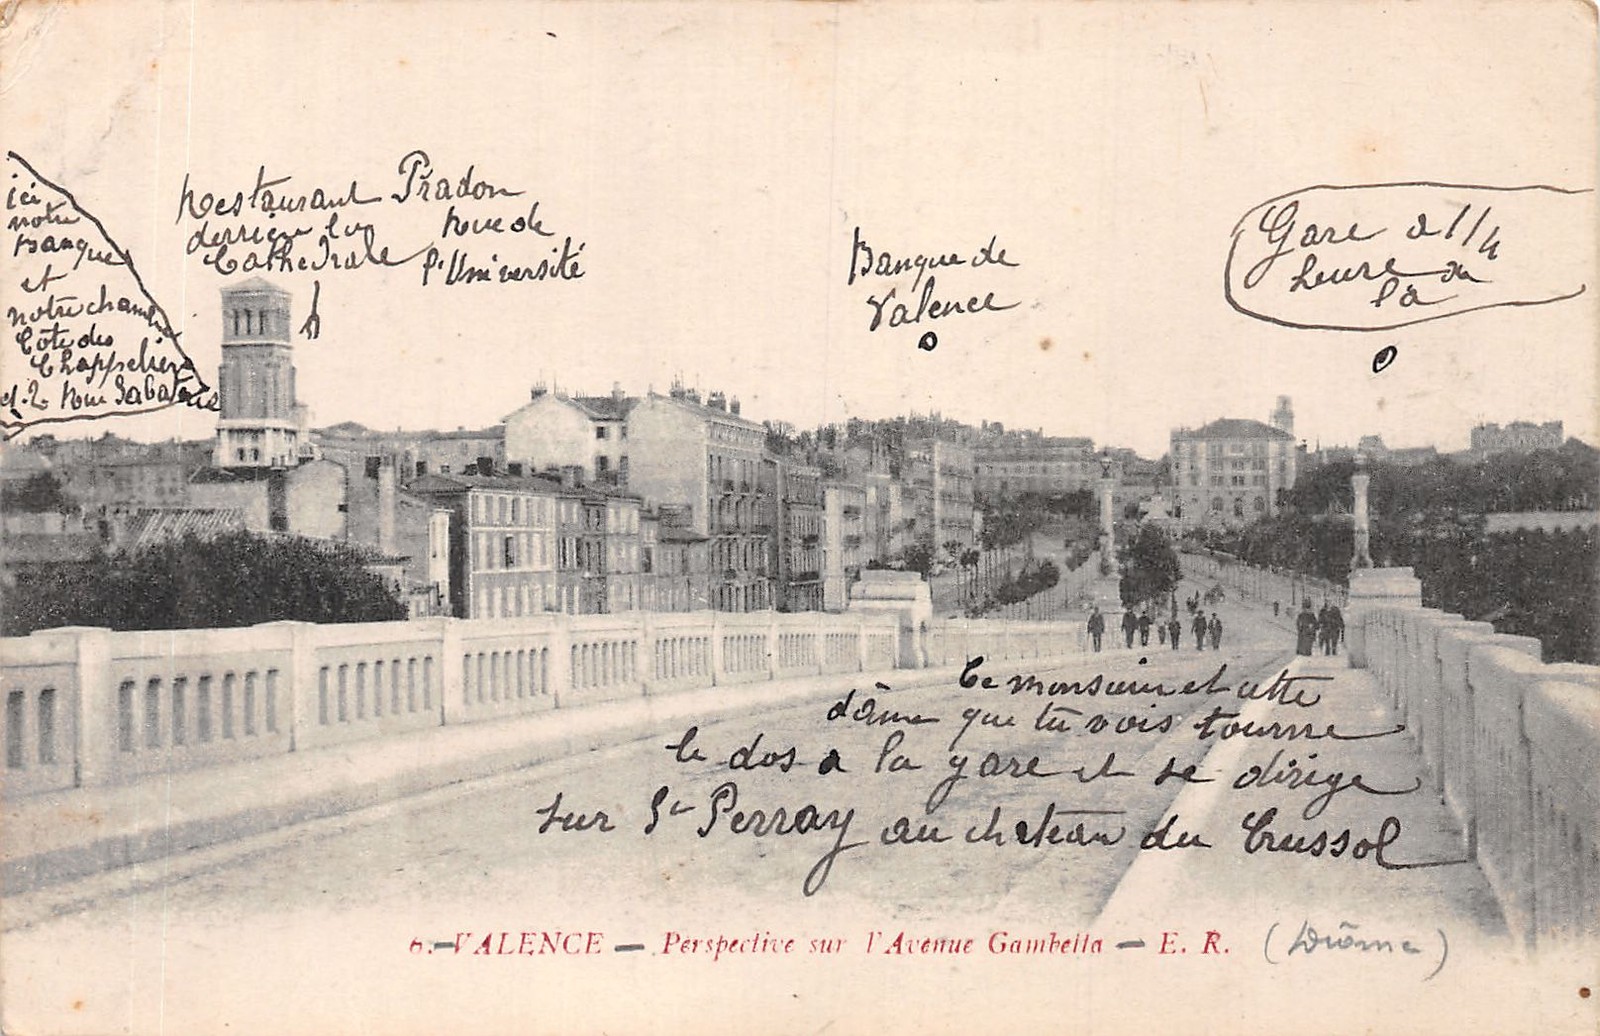 ici
notre
Banque
et
notre chambre
Côte des
Chappeliers
et 2 Rue Sabaterie
Restaurant Pradon
derrière la
Cathedrale
Rue de
l'Université
Banque de
Valence
Gare a 1/4
heure de
là
Ce monsieur et cette
dâme que tu vois tourne
le dos a la gare et se dirige
sur St Perray au chateau du Crussol
6. - VALENCE — Perspective sur l'Avenue Gambetta — E. R. (Drôme)